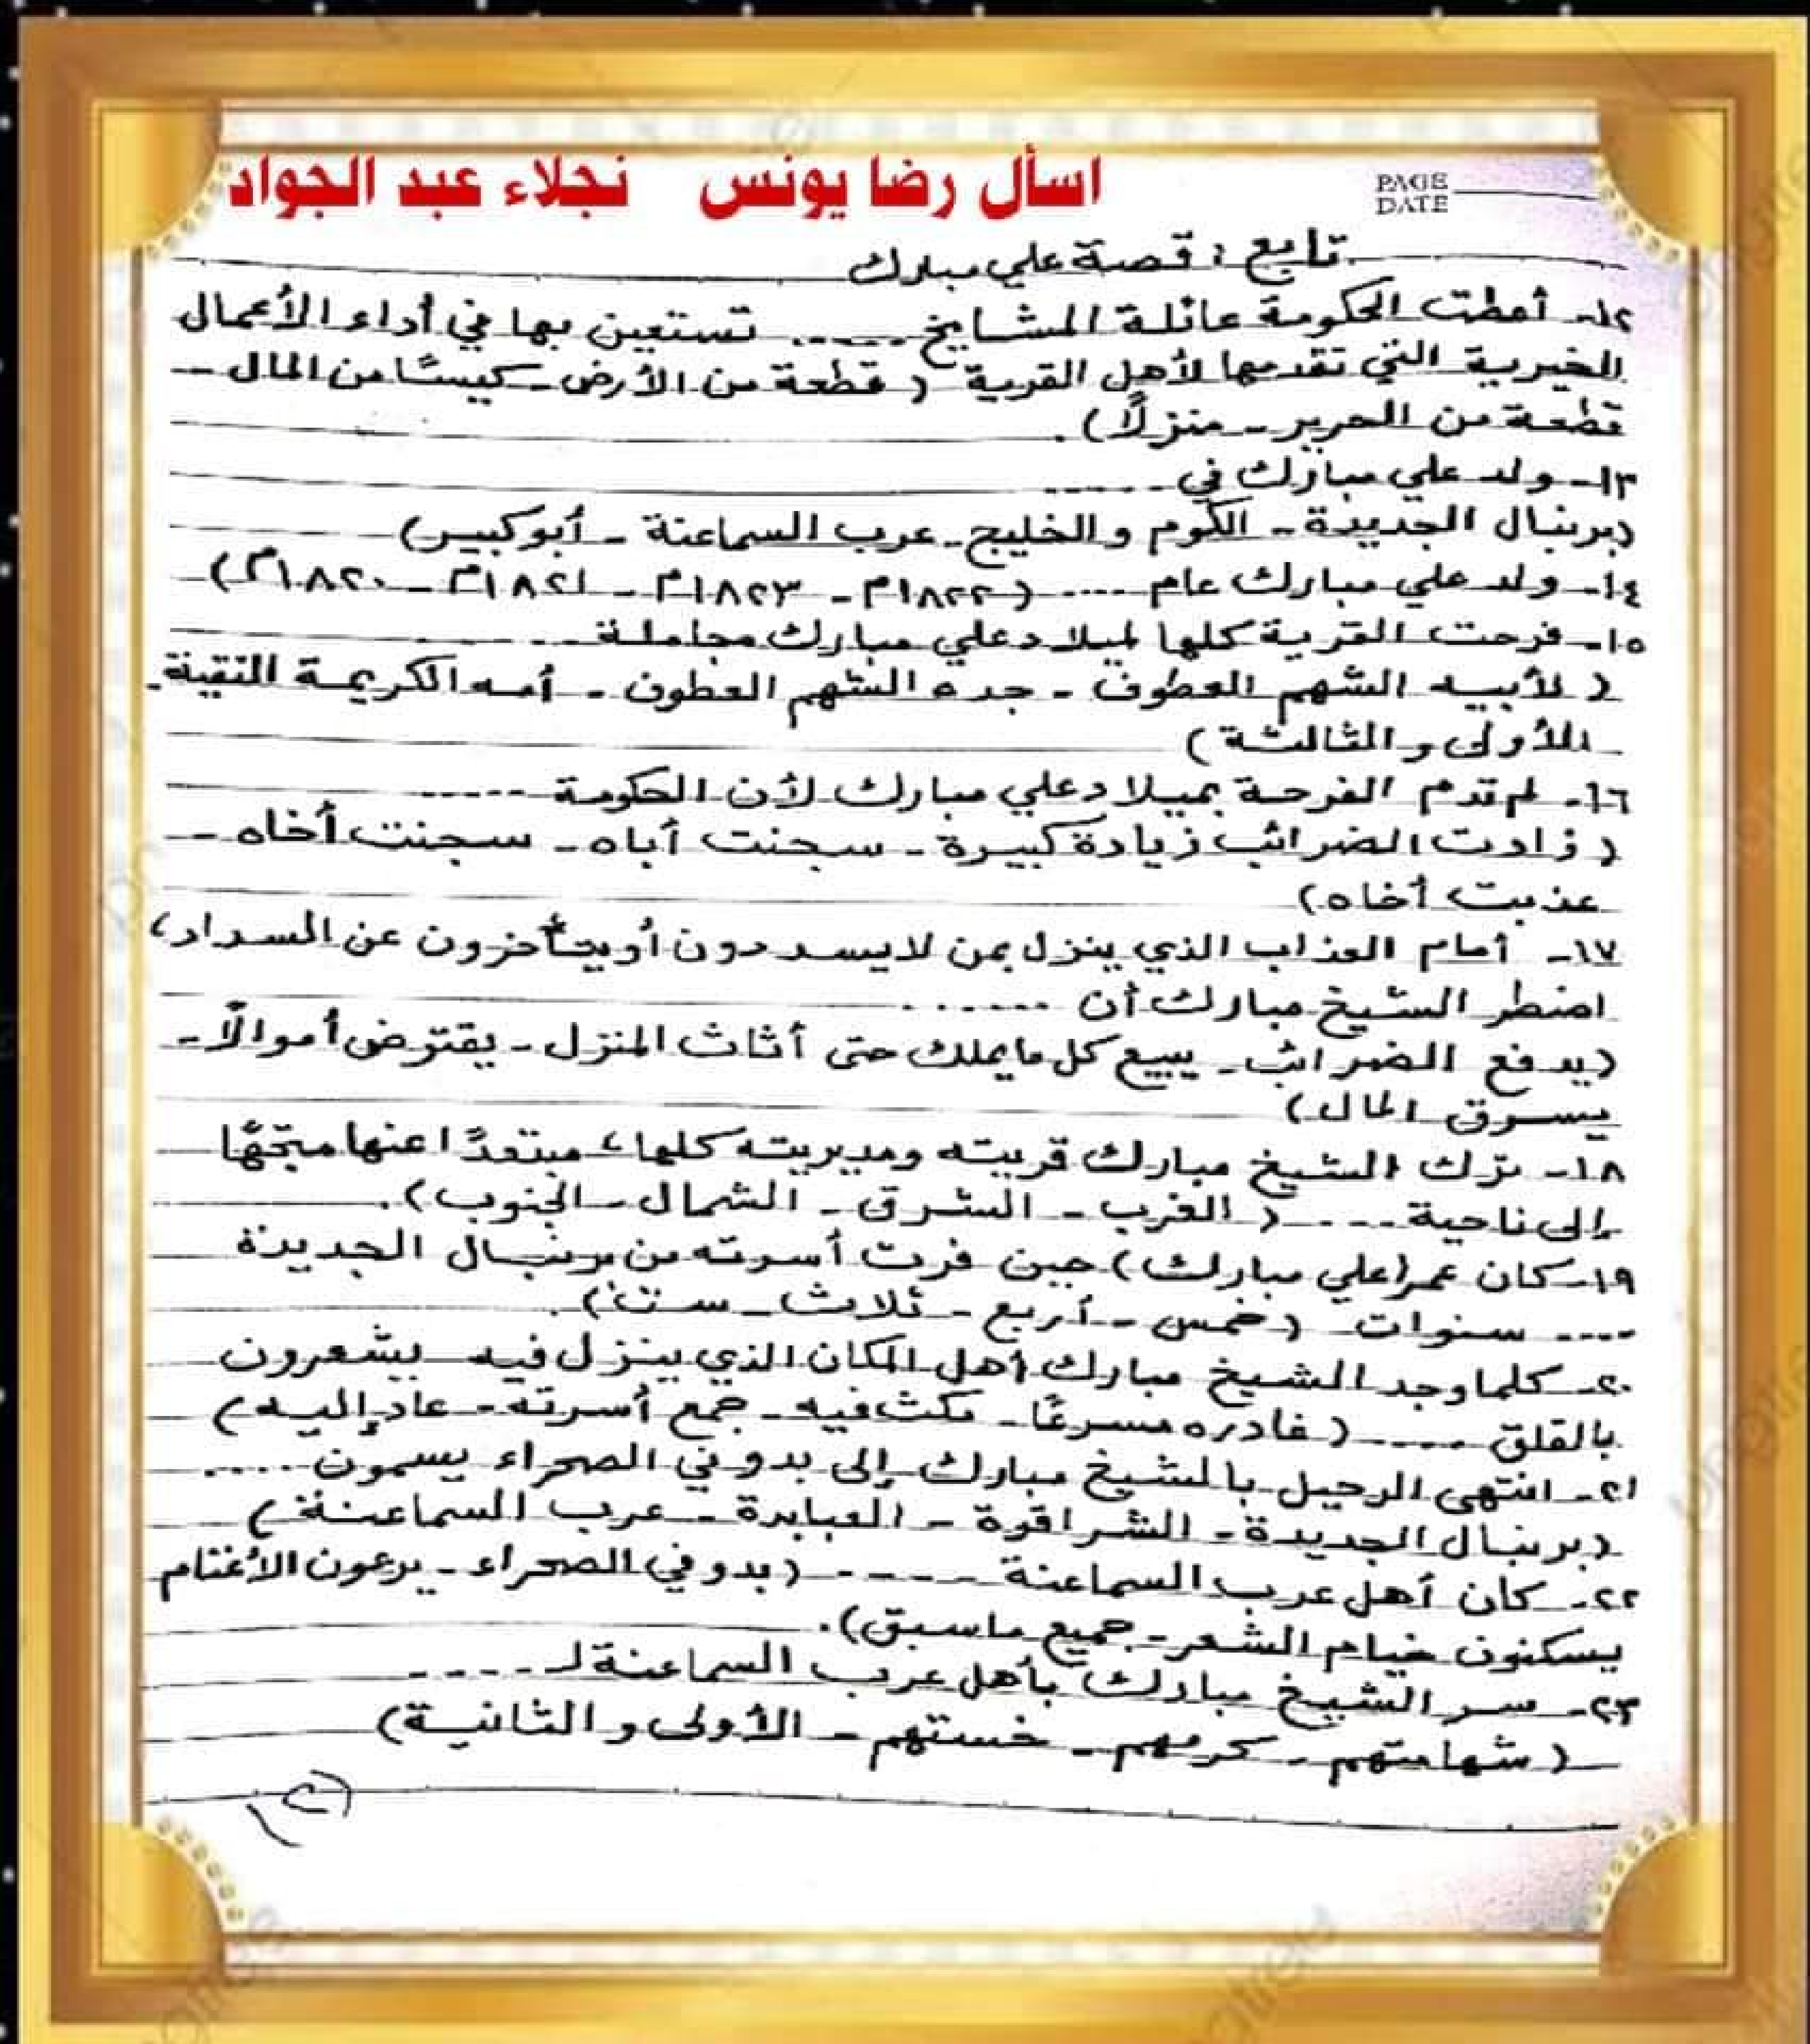 اسأل رضا يونس نجلاء عبد الجواد
PAGE
DATE
تابع : قصة علي مبارك
١٢- أعطت الحكومة عائلة المشايخ ..... تستعين بها في أداء الأعمال
الخيرية التي تقدمها لأهل القرية ( قطعة من الأرض - كيسًا من المال -
قطعة من الحرير - منزلًا ) .
١٣- ولد علي مبارك في .....
(برنبال الجديدة - الكوم والخليج - عرب السماعنة - أبو كبير)
١٤- ولد علي مبارك عام .... (١٨٢٢م - ١٨٢٣م - ١٨٢١م - ١٨٢٠م)
١٥- فرحت القرية كلها لميلاد علي مبارك مجاملة .....
( لأبيه الشهم العطوف - جده الشهم العطوف - أمه الكريمة النقية -
الأولى والثالثة )
١٦- لم تدم الفرحة بميلاد علي مبارك لأن الحكومة .....
( زادت الضرائب زيادة كبيرة - سجنت أباه - سجنت أخاه -
عذبت أخاه )
١٧- أمام العذاب الذي ينزل بمن لا يسددون أو يتأخرون عن السداد،
اضطر الشيخ مبارك أن ......
(يدفع الضرائب - يبيع كل ما يملك حتى أثاث المنزل - يقترض أموالًا -
يسرق المال )
١٨- ترك الشيخ مبارك قريته ومديريته كلها، مبتعدًا عنها متجهًا
إلى ناحية .... ( الغرب - الشرق - الشمال - الجنوب ) .
١٩- كان عمر (علي مبارك) حين فرت أسرته من برنبال الجديدة
.... سنوات ( خمس - أربع - ثلاث - ست ) .
٢٠- كلما وجد الشيخ مبارك أهل المكان الذي ينزل فيه يشعرون
بالقلق .... ( غادره مسرعًا - مكث فيه - جمع أسرته - عاد إليه )
٢١- انتهى الرحيل بالشيخ مبارك إلى بدو في الصحراء يسمون .....
(برنبال الجديدة - الشراقوة - العبابدة - عرب السماعنة )
٢٢- كان أهل عرب السماعنة ..... (بدو في الصحراء - يرعون الأغنام
يسكنون خيام الشعر - جميع ما سبق ) .
٢٣- سر الشيخ مبارك بأهل عرب السماعنة لـ .....
( شهامتهم - كرمهم - خستهم - الأولى والثانية )
(٢)